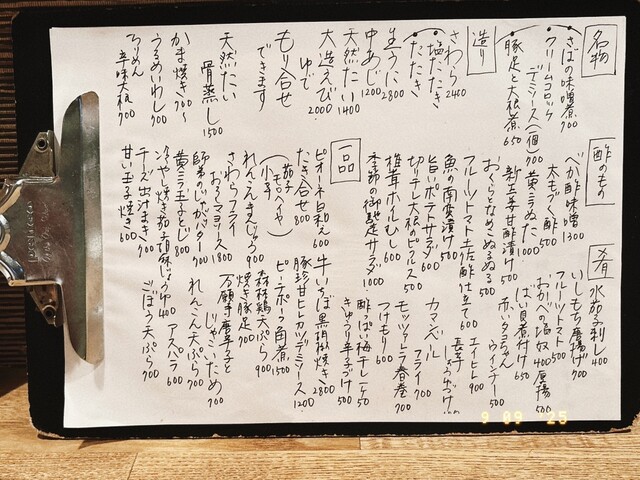 名物
さばの味噌煮 700
クリームコロッケ
デミソース(一個) 700
豚足と大根煮 650
造り
さわら 2400
塩たたき
たたき
生うに 2800
中あじ 1200
天然たい 1400
大造えび 2000
ゆで
もり合せ
できます
天然たい
骨蒸し 1500
かま焼き 700~
うるめいわし 700
ちりめん
辛味大根 700
酢のもの
べか酢味噌 1300
太もづく酢 500
黄ニラぬた 1000
新生姜甘酢漬け 500
おくらとなめこ
フルーツトマト土佐酢仕立て 600
魚の南蛮漬け 500
旨いポテトサラダ 600
切りテレ大根のピクルス 500
椎茸ホイルむし 600
季節の御馳走サラダ 1000
一品
ピオーネ白和え 600
たたき合せ 800
茄子
れんこんまんじゅう 900
さわらフライ
おろしマヨソース 1800
師弟のじゃがバター 700
黄ニラ玉子とじ 800
冷やし焼き茄子胡麻じょうゆ 400
チーズ出汁まき 700
甘い玉子焼き 600
肴
水茄子刺し 400
いしもち唐揚げ 700
フルーツトマト 500
おかべの塩奴 400 厚揚 500
ばい貝煮付け 650
赤いタコちゃん
ウインナー 500
エイヒレ 900
長芋
しょうゆづけ
カマンベール
フライ 700
モッツァレラ春巻 700
つけもり 600
酸っぱい梅干し一ケ 50
きゅうり辛子づけ 500
牛いちぼ黒胡椒焼き 2800
豚珍甘ヒレカツデミソース 1200
ピーチポーク角煮 1500
森林鶏天ぷら 900
焼き豚足 700
万願寺唐辛子と
じゃこいため 700
れんこん天ぷら 700
アスパラ 600
ごぼう天ぷら 700
9 09 '25